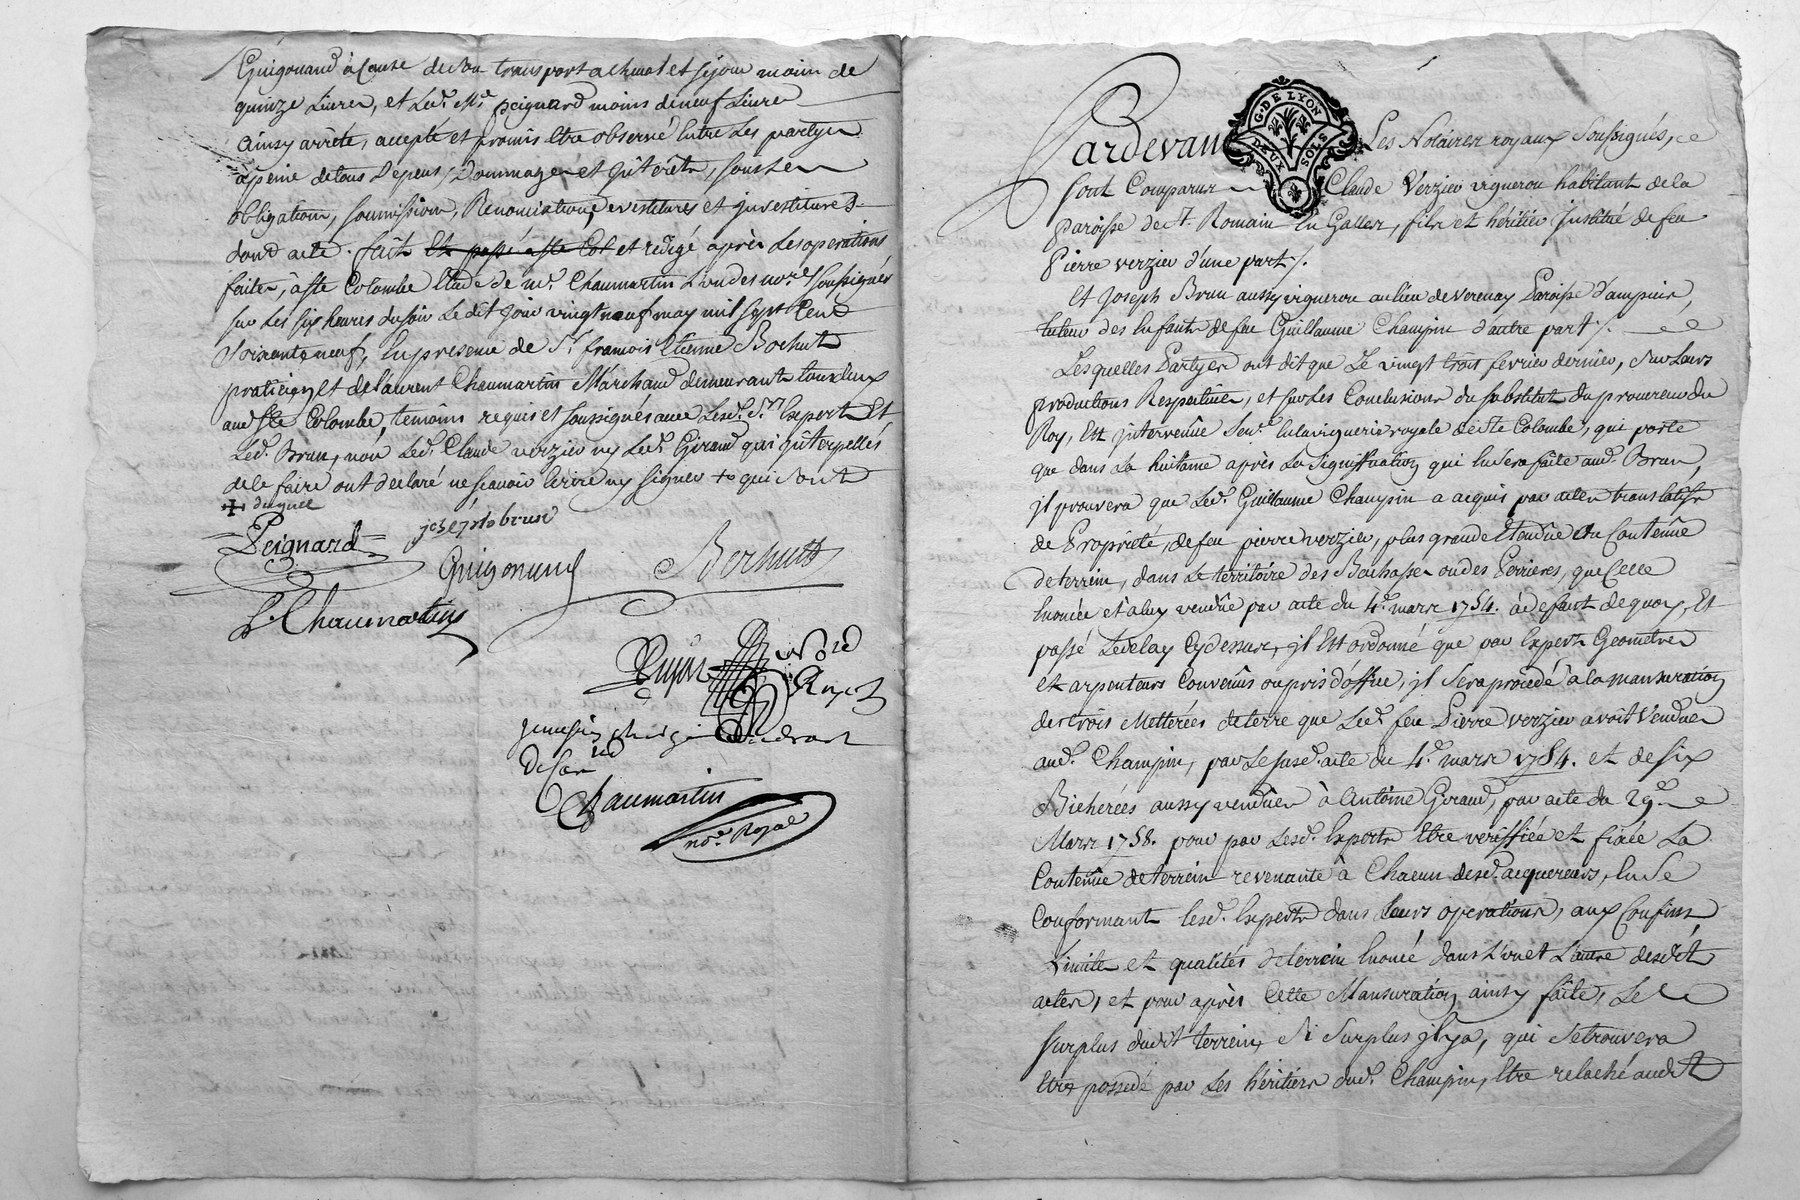 Guigonand à Cause de son transport a cheval et séjour moins de
quinze Livres, et Led. Me. peignard moins de neuf Livres
ainsy arrêté, accepté et promis être observé Entre Les partyes
a peine de tous Depens, Dommages et jntérêts, sous Les
obligations, soumissions, Renonciations, devestitures et jnvestitures
dont acte. fait Et passé a ste Col et redigé après Les operations
faites, à ste Colombe Etude de me. Chaumartin L'un des nores. soussignés
sur Les six heures du soir Le dit jour vingt neuf may mil sept Cent
Soixante neuf, En presence de Sr. francois Etienne Bochut
praticien et de laurent Chaumartin Marchand demeurants tous deux
aud. Ste Colombe, temoins requis et soussignés avec Lesd. Srs. Experts Et
Led. Brun, non Led. Claude verzieu ny Led. Giraud qui jnterpellés
de le faire ont declaré ne scavoir Ecrire ny signer + qui sont
+ duquel
Peignard
josept brun
Guigonand
Bochutt
L. Chaumartin
Chaumartin
nore. Royal
G. DE LYON
DEUX SOLS
Pardevant Les Notaires royaux Soussignés,
sont Comparus Claude Verzieu vigneron habitant de la
Paroisse de St. Romain En Galles, fils et héritier jnstitué de feu
Pierre verzieu d'une part /.
Et Joseph Brun aussy vigneron au lieu de Verenay Paroisse d'ampuis,
tuteur des Enfants de feu Guillaume Champin d'autre part /.
Lesquelles Partyes ont dit que Le vingt trois fevrier dernier, sur Leurs
productions Respectives, et sur Les Conclusions du substitut du procureur du
Roy, Est jntervenüe Sence. En la viguerie royale de Ste Colombe, qui porte
que dans La huitaine après La signiffication qui En Sera faite aud. Brun,
jl prouvera que Led. Guillaume Champin a acquis par actes translatifs
de Propriété, de feu pierre verzieu, plus grande Etendüe Ou Contenüe
de terrein, dans Le territoire des Bachasses ou des Perrieres, que Celle
Enoncée et a luy vendüe par acte du 4e. mars 1754. à defaut de quoy, Et
passé Le delay Cy dessus, jl Est ordonné que par Experts Geometres
et arpenteurs Convenus ou pris d'office, jl Sera procedé à la mansuration
de trois Metterées de terre que Led. feu Pierre verzieu avoit Vendues
aud. Champin, par Le susd. acte du 4e. mars 1754. et de six
Bicherées aussy vendües à Antoine Giraud, par acte du 29e.
Mars 1758. pour par Lesd. Experts Etre veriffiée et fixée La
Contenüe de terrein revenante à Chacun desd. acquereurs, En Se
Conformant lesd. Experts dans Leurs operations, aux Confins,
Limites et qualités de terrein Enoncé dans L'un et L'autre desdits
actes, et pour après Cette Mansuration ainsy faite, Le
surplus dudit terrein, Si Surplus jl y a, qui se trouvera
Etre possedé par Les héritiers dud. Champin, Etre relaché audit